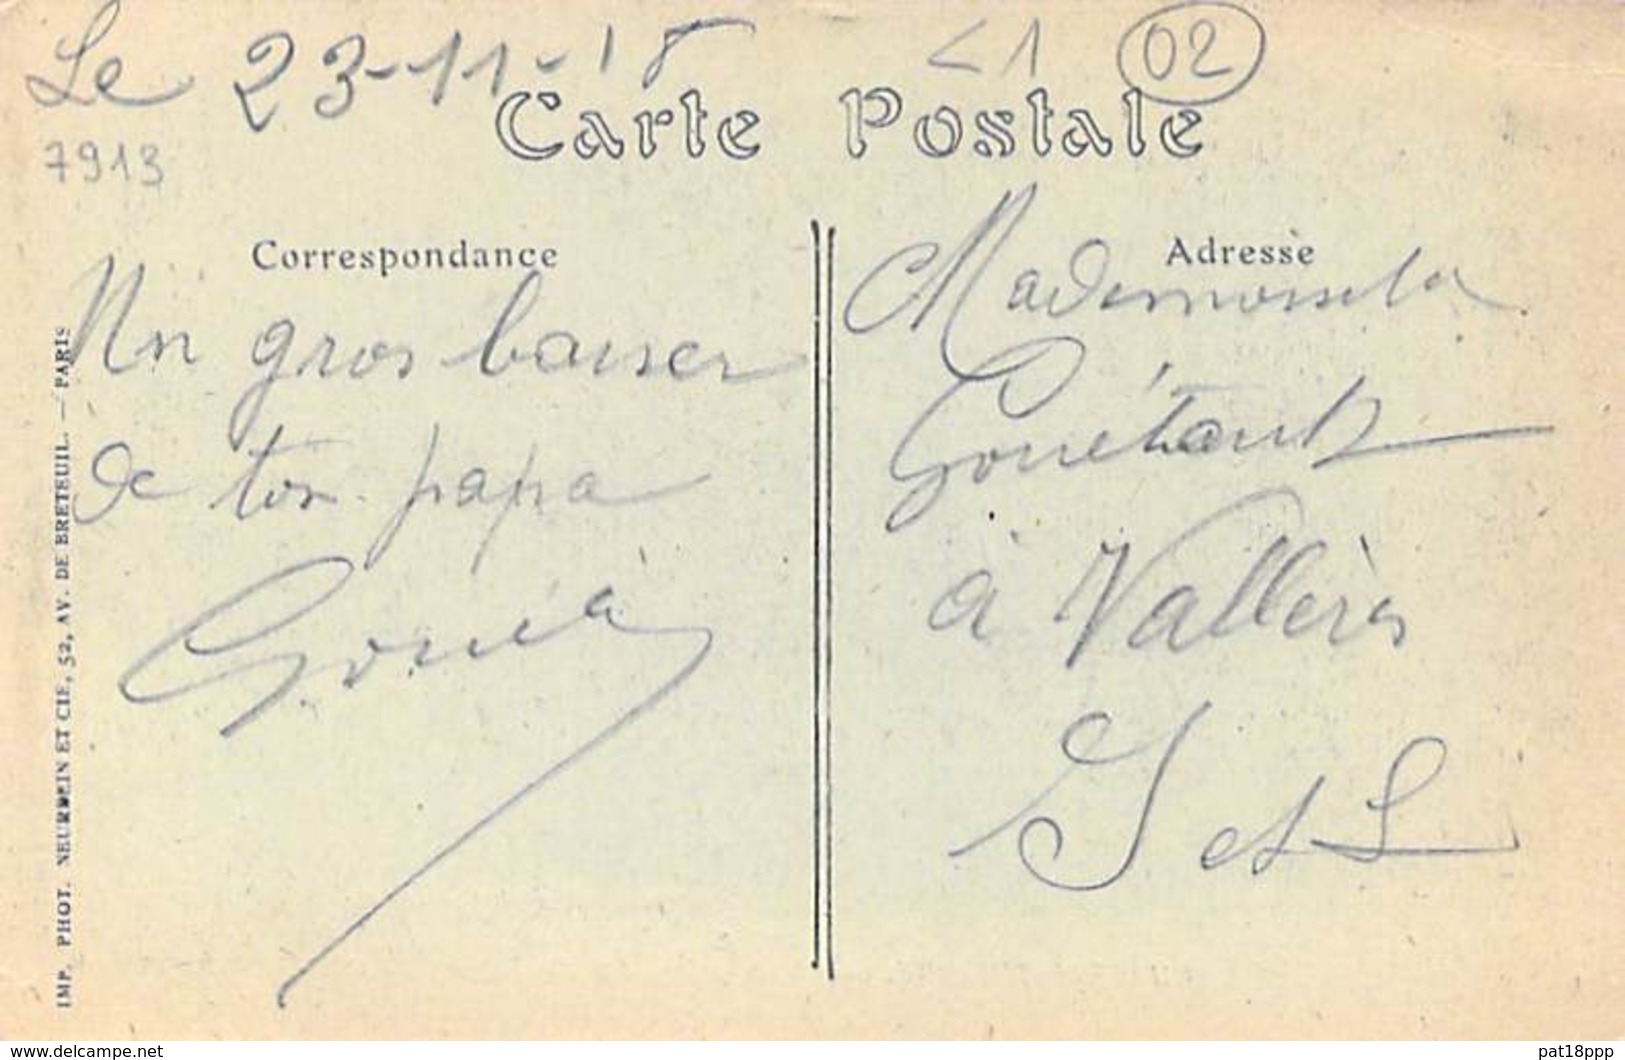 Le 23-11-18
<1 02
7913
Carte Postale
Correspondance
Un gros baiser
de ton papa
Adresse
Mademoiselle
à Vallères
I et L
IMP. PHOT. NEURDEIN ET CIE, 52, AV. DE BRETEUIL. — PARIS
www.delcampe.net
pat18ppp